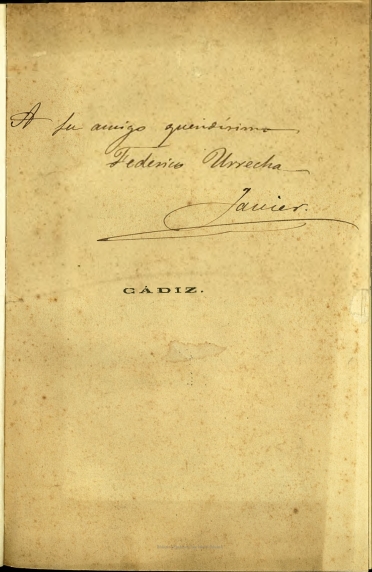 A su amigo queridísimo
Federico Urrecha
Javier.
CÁDIZ.